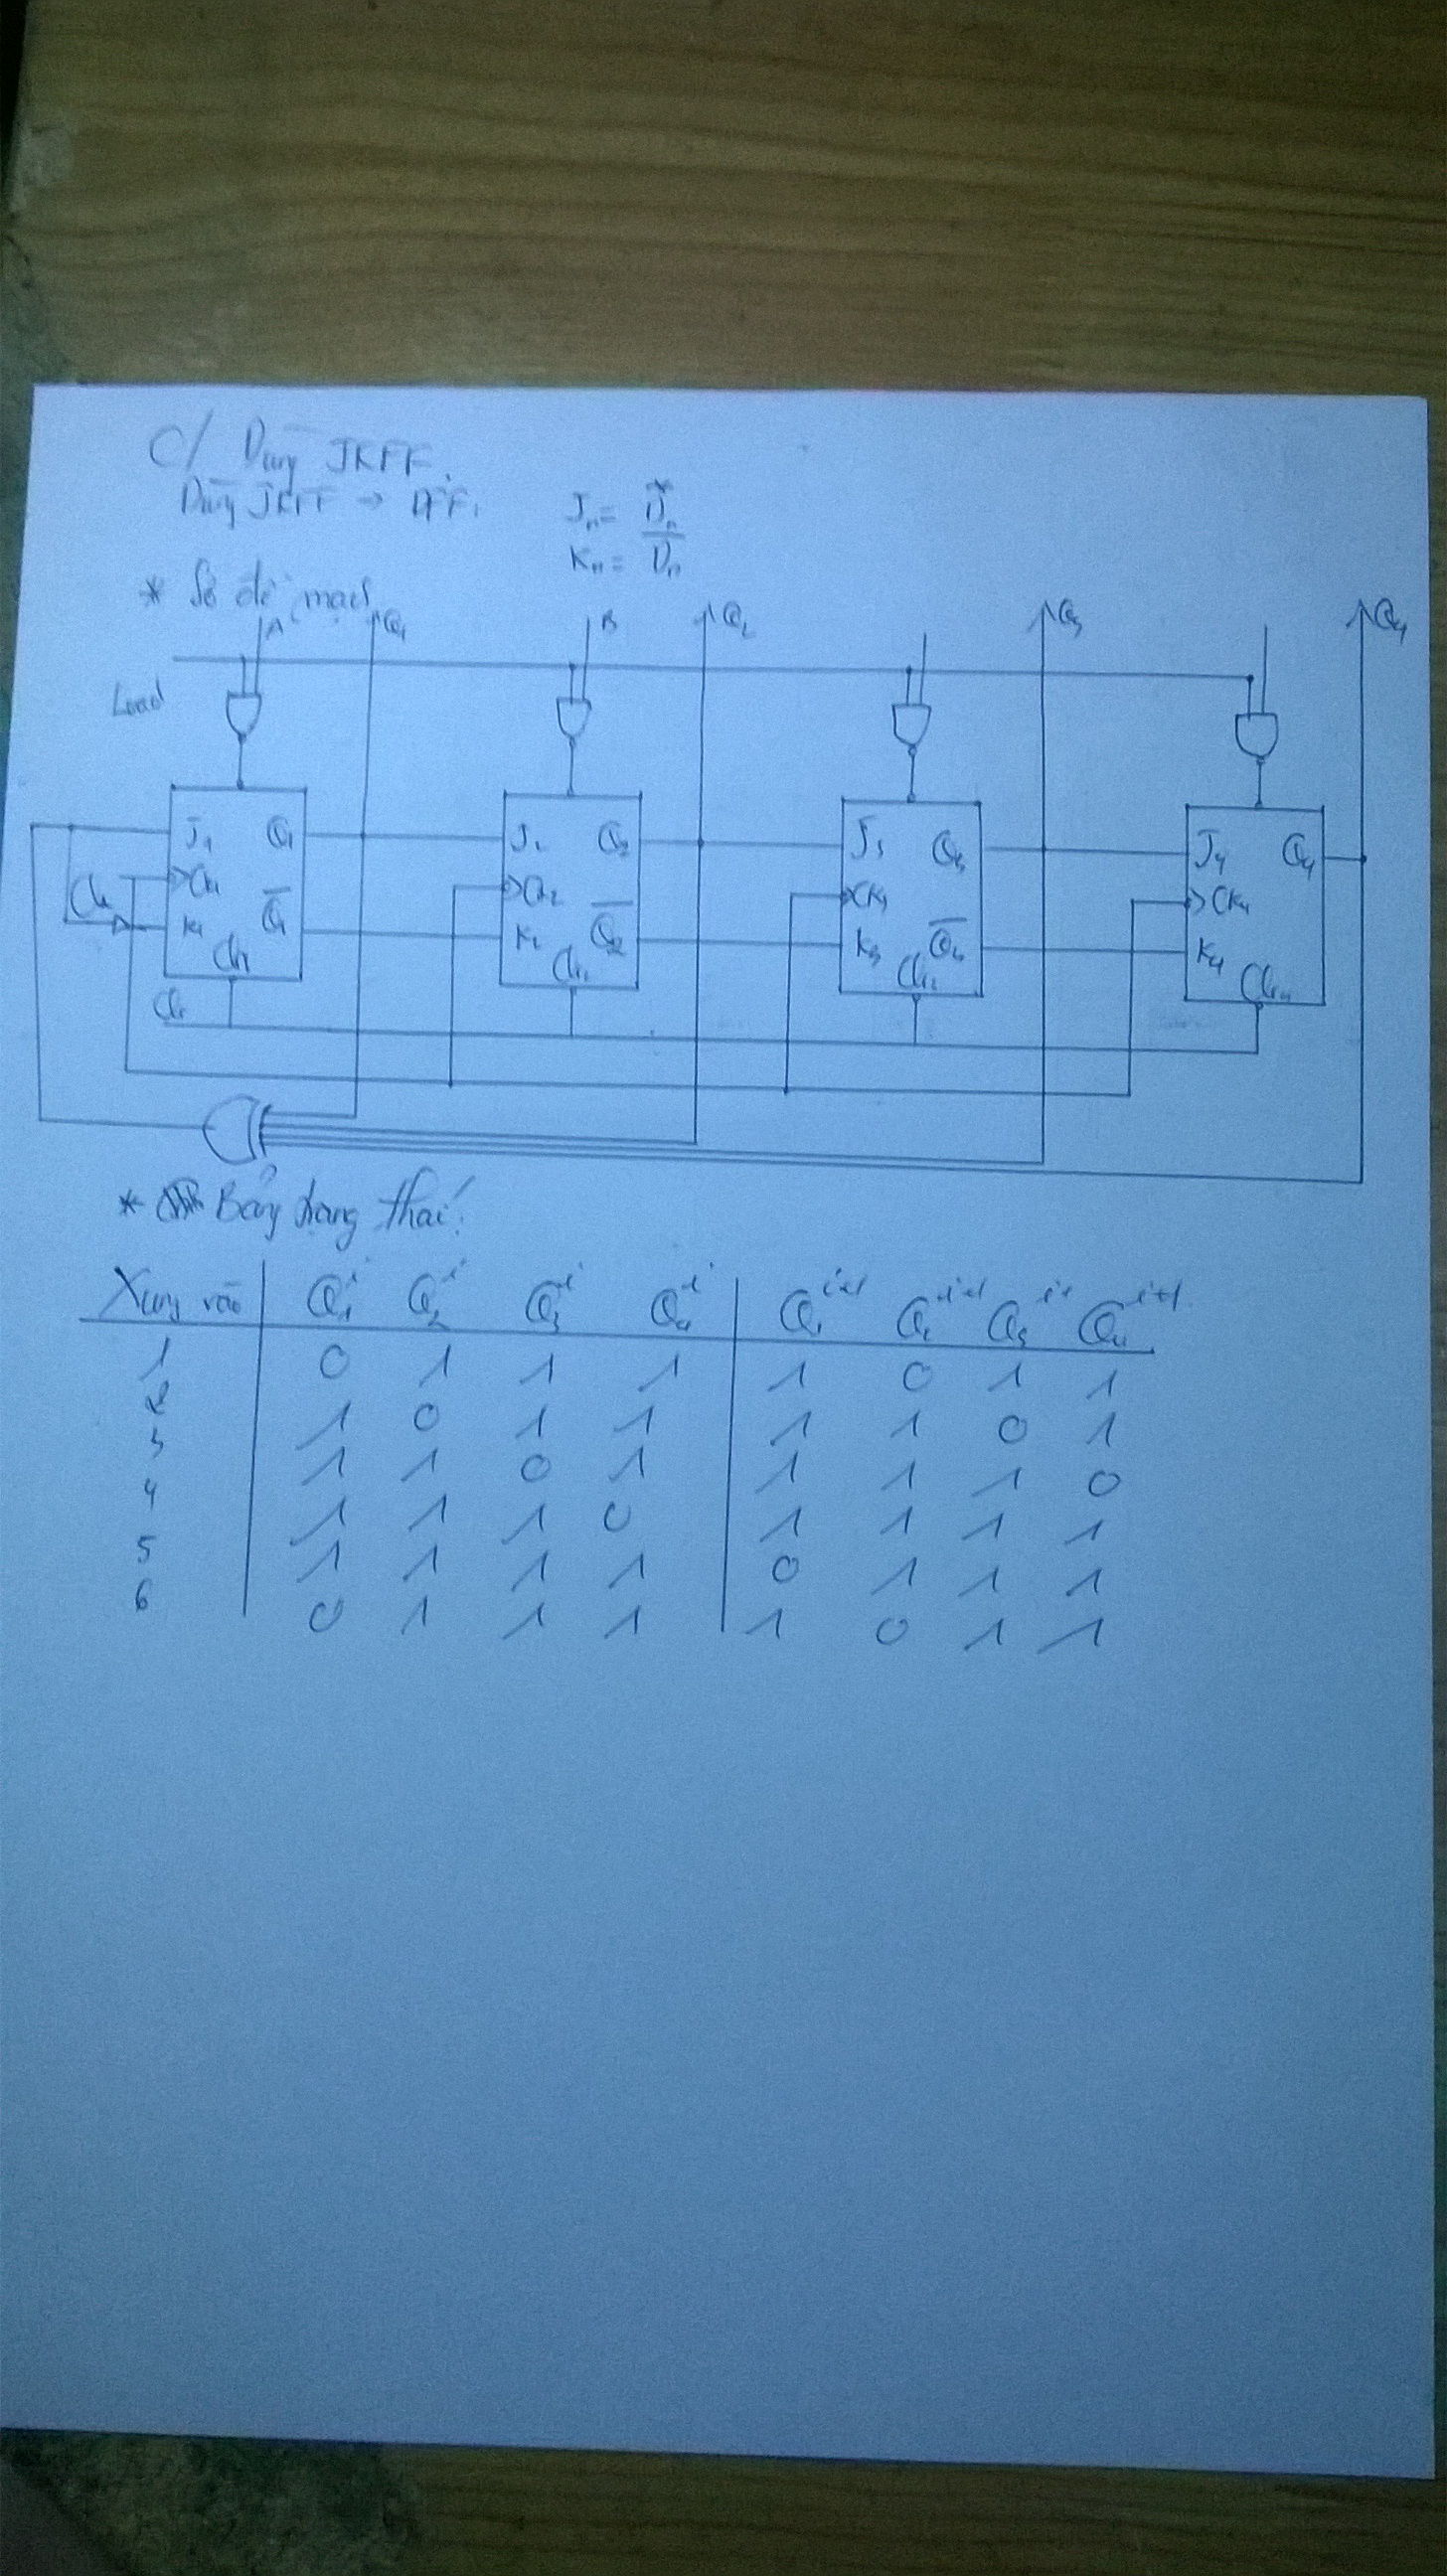 C/ Dùng JKFF.
Dùng JKFF → DFF.
Jₙ = Dₙ
Kₙ = D̅ₙ
* Sơ đồ mạch
A Q₁ B Q₂ Q₃ Q₄
Load
J₁ Q₁ J₂ Q₂ J₃ Q₃ J₄ Q₄
Ck CK₁ CK₂ CK₃ CK₄
K₁ Q̅₁ K₂ Q̅₂ K₃ K₄
Clr
* Bảng trạng thái:
Xung vào Q₁ⁱ Q₂ⁱ Q₃ⁱ Q₄ⁱ Q₁ⁱ⁺¹ Q₂ⁱ⁺¹ Q₃ⁱ⁺¹ Q₄ⁱ⁺¹
1 0 1 1 1 1 0 1 1
2 1 0 1 1 1 1 0 1
3 1 1 0 1 1 1 1 0
4 1 1 1 0 1 1 1 1
5 1 1 1 1 0 1 1 1
6 0 1 1 1 1 0 1 1